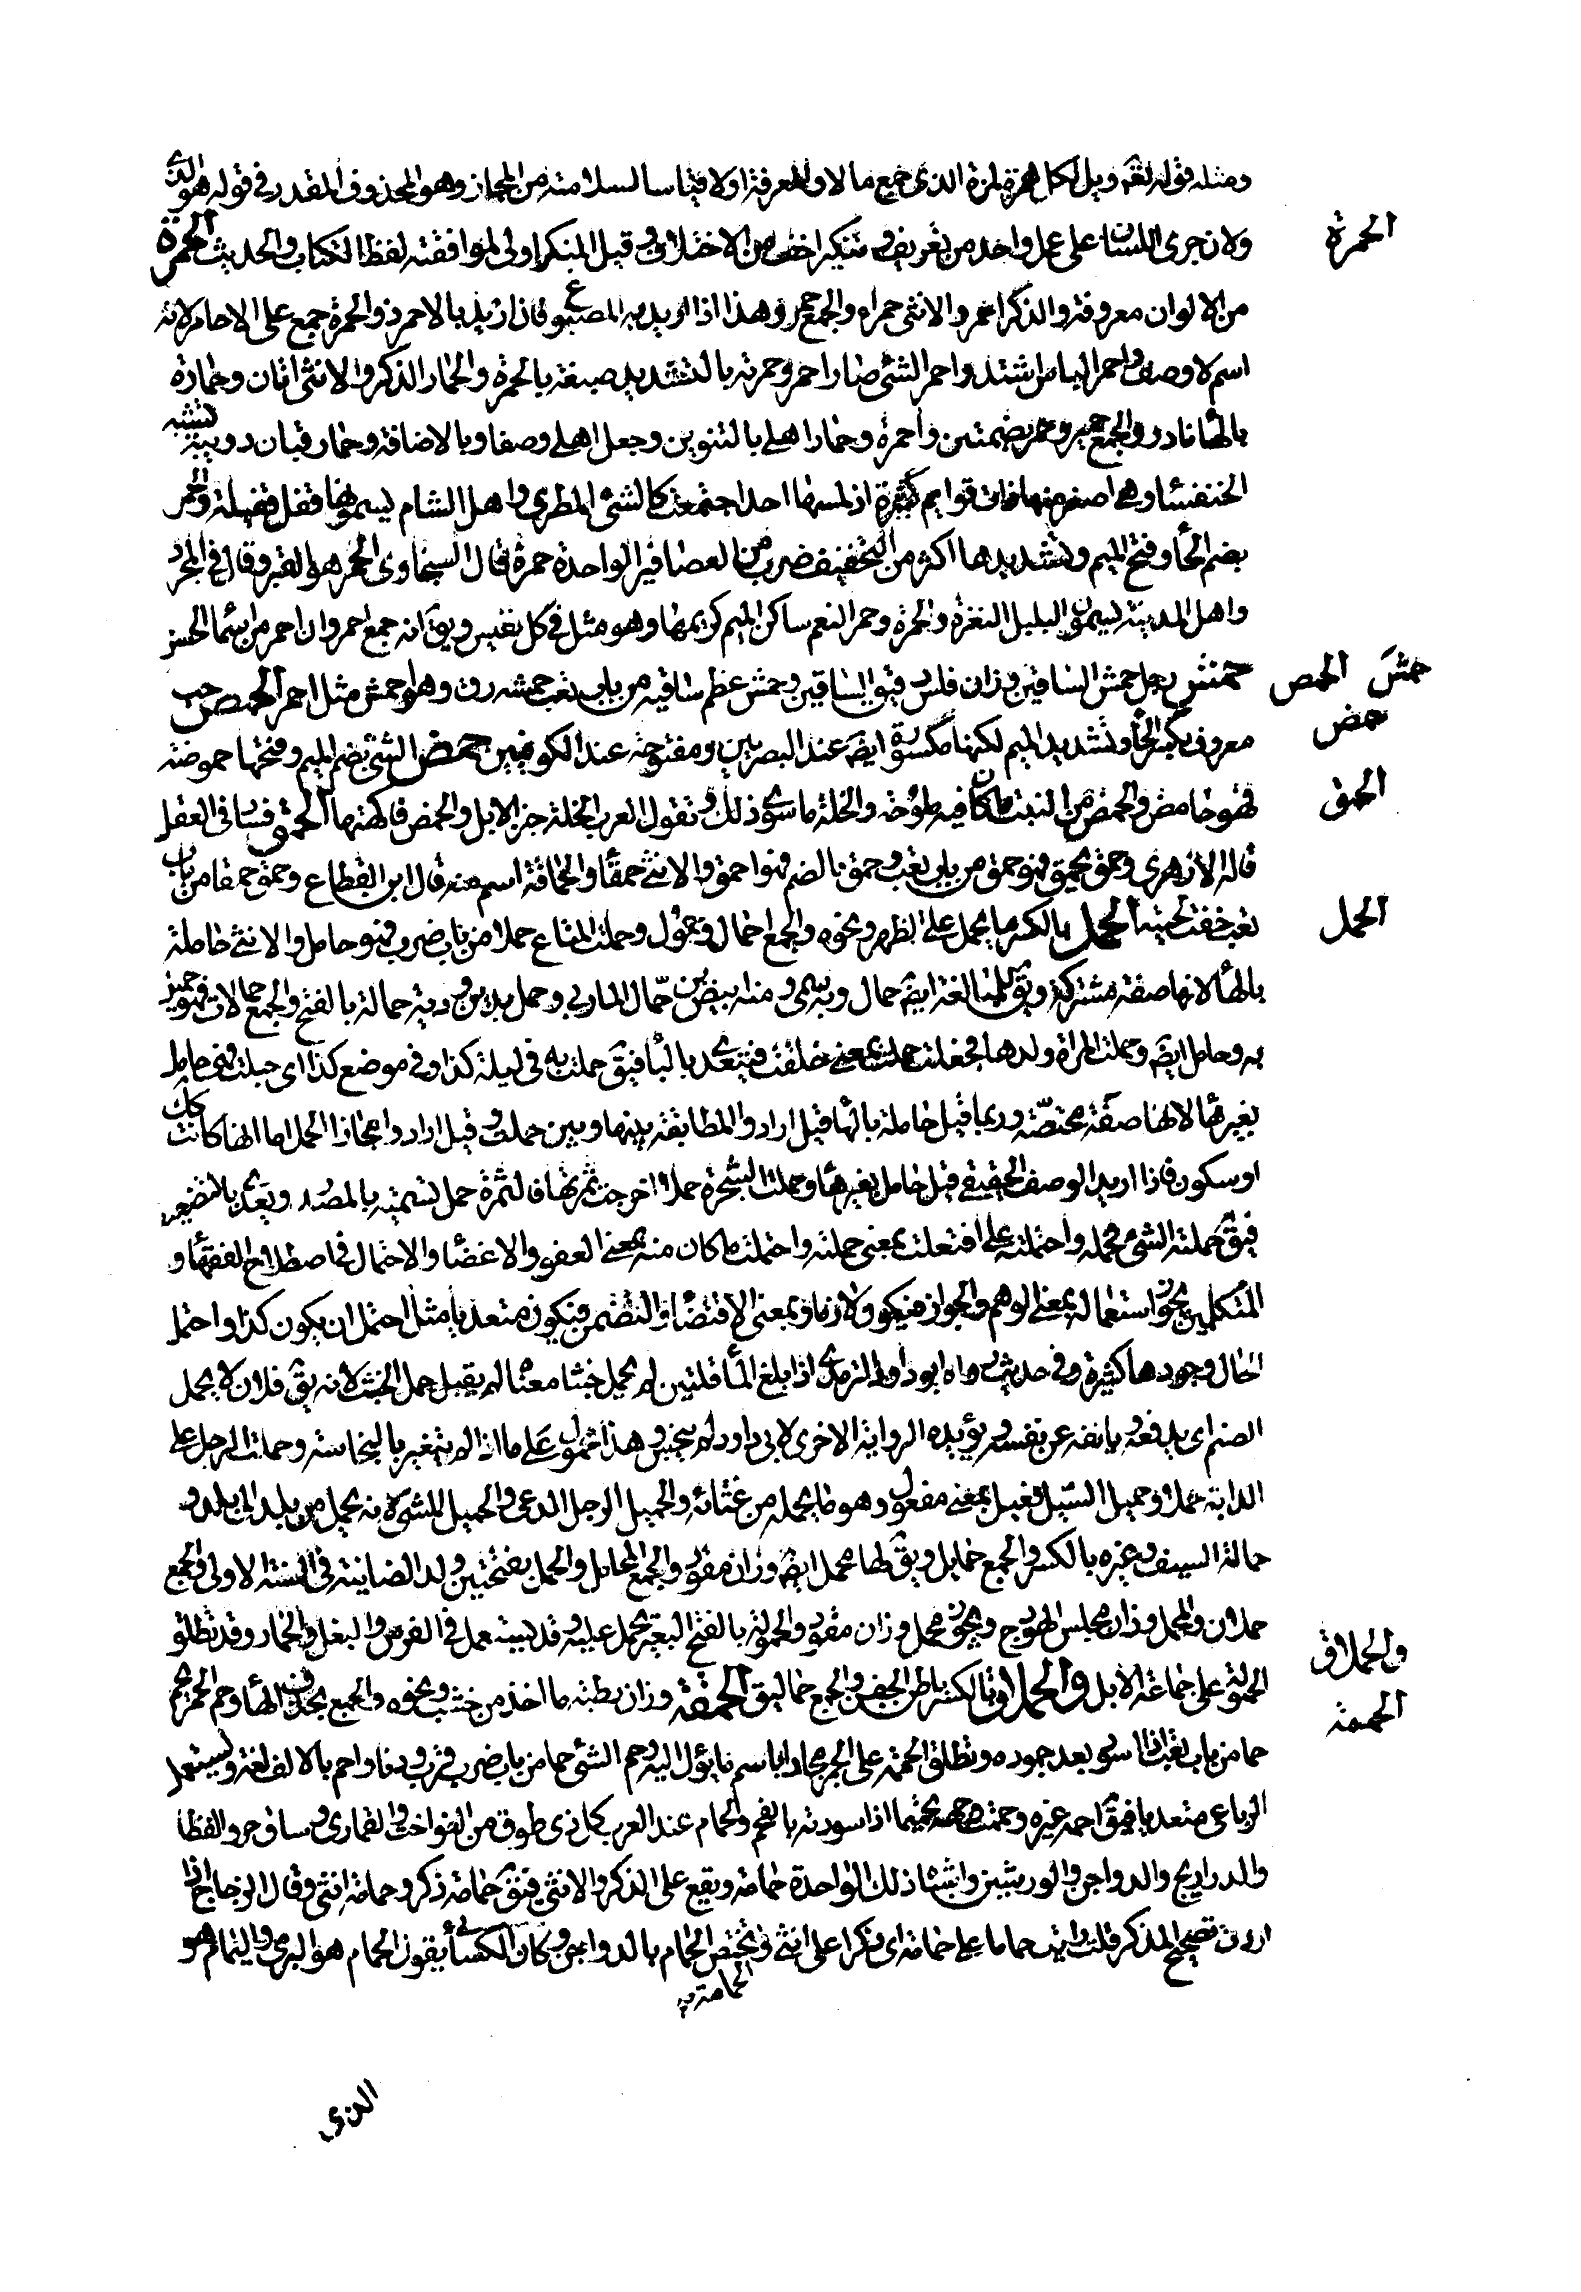 ومثله قوله تعم ويل لكل همزة لمزة الذي جمع مالا والمعرفة اولا قياسا لسلامته من المجاز وهو المحذوف المقدر في قوله هو الذي
ولان جرى اللسان على عمل واحد من تعريف وتنكير اخف من الاختلاف وقيل المنكر اولى لموافقته لفظ الكتاب والحديث الحمرة
الحمرة
من الالوان معروفة والذكر احمر والانثى حمراء والجمع حمر وهذا اذا اريد به المصبوغ فان اريد بالاحمر ذو الحمرة جمع على الاحامر لانه
اسم لا وصف واحمر الباس اشتد واحمر الشئ صار احمر وحمرته بالتشديد صبغته بالحمرة والحمار الذكر والانثى اتان وحمارة
بالهاء نادر والجمع حمير وحمر بضمتين واحمرة وحمارا هلي بالتنوين وجعل اهلي وصفا وبالاضافة وحمار قبان دويبة تشبه
الخنفساء وهي اصغر منها ذات قوايم كثيرة اذا لمسها احد اجتمعت كالشئ المطوي واهل الشام يسمونها قفل قفيلة والحمر
بضم الحاء وفتح الميم وتشديدها اكثر من التخفيف ضرب من العصافير الواحدة حمرة قال السخاوي الحمر هو القبر وقال في المجرد
واهل المدينة يسمون البلبل النغرة والحمرة وحمر النعم ساكن الميم كريمها وهو مثل في كل نفيس ويق انه جمع احمر وان احمر من اسماء الحسن
حمش رجل حمش الساقين وزان فلس دقيق الساقين وحمش عظم ساقيه من باب تعب حمشه رق وهو احمش مثل احمر الحمص حب
حمش الحمص
معروف بكسر الحاء وتشديد الميم لكنها مكسورة ايضا عند البصريين ومفتوحة عند الكوفيين حمض الشئ بضم الميم وفتحها حموضة
حمض
فهو حامض والحمض من النبت ما كان فيه ملوحة والخلة ما سوى ذلك وتقول العرب الخلة خبز الابل والحمض فاكهتها الحمق فساد في العقل
الحمق
قاله الازهري وحمق يحمق فهو حمق من باب تعب وحمق بالضم فهو احمق والانثى حمقاء والحماقة اسم منه قال ابن القطاع وحمق حمقا من باب
تعب خفت لحيته الحمل بالكسر ما يحمل على الظهر ونحوه والجمع احمال وحمول وحملت المتاع حملا من باب ضرب فهو حامل والانثى حاملة
الحمل
بالهاء لانها صفة مشتركة ويق للمبالغة ايض حمال وبه سمى ومنه ابيض بن حمال الماربي وحمل بدين ودية حمالة بالفتح والجمع حمالات فهو حميل
به وحامل ايض وحملت المراة ولدها فجعلت حملت بمعنى علقت فيتعدى بالباء فيق حملت به في ليلة كذا وفي موضع كذا اي حبلت فهي حامل
بغير هاء لانها صفة مختصة وربما قيل حاملة بالهاء قيل ارادوا المطابقة بينها وبين حملت وقيل ارادوا مجاز الحمل اما انها كانت كك
او سكون فاذا اريد الوصف الحقيقي قيل حامل بغير هاء وحملت الشجرة حملا اخرجت ثمرتها فالثمرة حمل تسمية بالمصدر ويعدى بالتضعيف
فيق حملته الشئ فحمله واحتملته على افتعلت بمعنى حملته واحتملت ما كان منه بمعنى العفو والاغضاء والاحتمال في اصطلاح الفقهاء و
المتكلمين يجوز استعماله بمعنى الوهم والجواز فيكون لازما وبمعنى الاقتضاء والتضمن فيكون متعديا مثل احتمل ان يكون كذا واحتمل
الحال وجوها كثيرة وفي حديث رواه ابو داود والترمذي اذا بلغ الماء قلتين لم يحمل خبثا معناه لم يقبل حمل الخبث لانه يق فلان لا يحمل
الضيم اي يدفعه بانفه عن نفسه ويؤيده الرواية الاخرى لابي داود لم ينجس وهذا محمول على ما اذا لم يتغير بالنجاسة وحملت الرجل على
الدابة حملا وحميل السيل فعيل بمعنى مفعول وهو ما يحمله من غثائه والحميل الرجل الدعي والحميل المسبى لانه يحمل من بلد الى بلد و
حمالة السيف وغيره بالكسر والجمع حمايل ويق لها محمل ايض وزان مقود والجمع المحامل والحمل بفتحتين ولد الضاينة في السنة الاولى والجمع
حملان والمحمل وزان مجلس الهودج ويجوز محمل وزان مقود والحمولة بالفتح البعير يحمل عليه وقد يستعمل في الفرس والبغل والحمار وقد تطلق
الحمولة على جماعة الابل والحملاق بالكسر باطن الجفن والجمع حماليق الحممة وزان رطبة ما احترق من خشب ونحوه والجمع بحذف الهاء وحم الجمر يحم
والحملاق
الحممة
حما من باب تعب اذا اسود بعد جموده وتطلق الحممة على الجمر مجازا باسم ما يؤل اليه وحم الشئ حما من باب ضرب قرب ودنا واحم بالالف لغة ويستعمل
الرباعي متعديا فيق احمه غيره وحممت وجهه تحميما اذا سودته بالفحم والحمام عند العرب كل ذي طوق من الفواخت والقماري وساق حر والقطا
والدراريج والدواجن والوراشين واشباه ذلك الواحدة حمامة ويقع على الذكر والانثى فيق حمامة ذكر وحمامة انثى وقال الزجاج اذا
اردت تصحيح المذكر قلت رايت حماما على حمامة اي ذكرا على انثى ويختص الحمام بالدواجن وكان الكسائي يقول الحمام هو البري واليمام هو
العامة
الذي